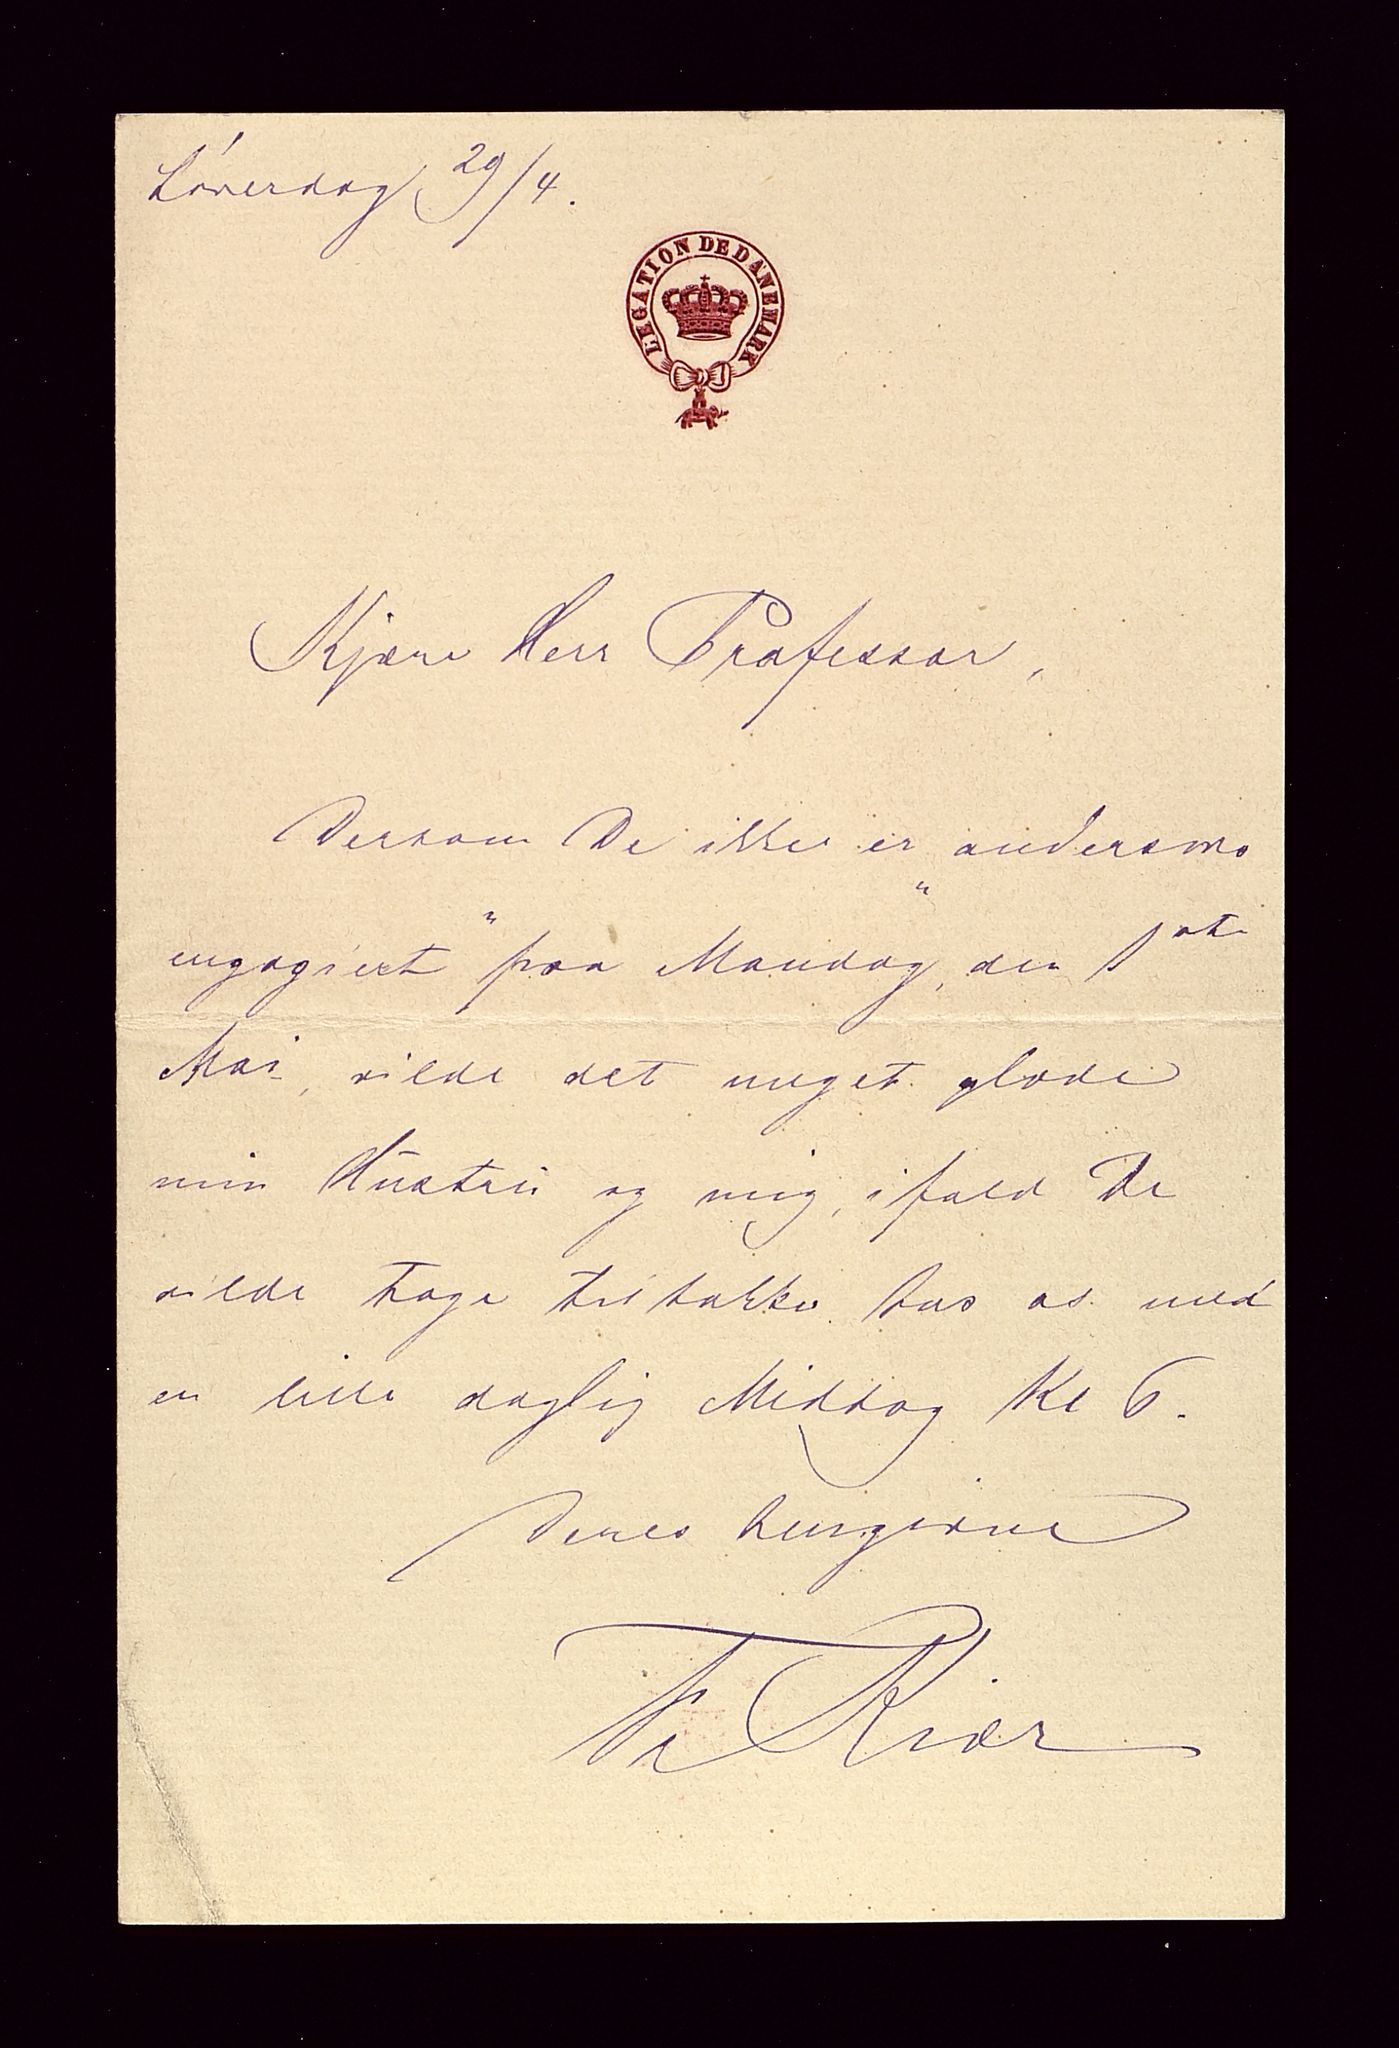 Löverdag 29/4.
LEGATION DE DANEMARK
Kjære Herr Professor,
Dersom De ikke er andersvo
"engagiert" paa Mandag, den 1ste
Mai, vilde det meget glæde
min Hustru og mig, ifald De
vilde tage tiltakke hos os med
en lille daglig Middag Kl 6.
Deres hengivne
Fr Kiær